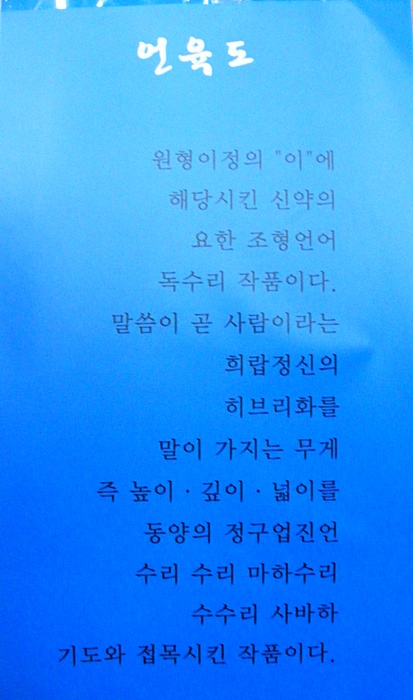 언육도
원형이정의 "이"에
해당시킨 신약의
요한 조형언어
독수리 작품이다.
말씀이 곧 사람이라는
희랍정신의
히브리화를
말이 가지는 무게
즉 높이 · 깊이 · 넓이를
동양의 정구업진언
수리 수리 마하수리
수수리 사바하
기도와 접목시킨 작품이다.